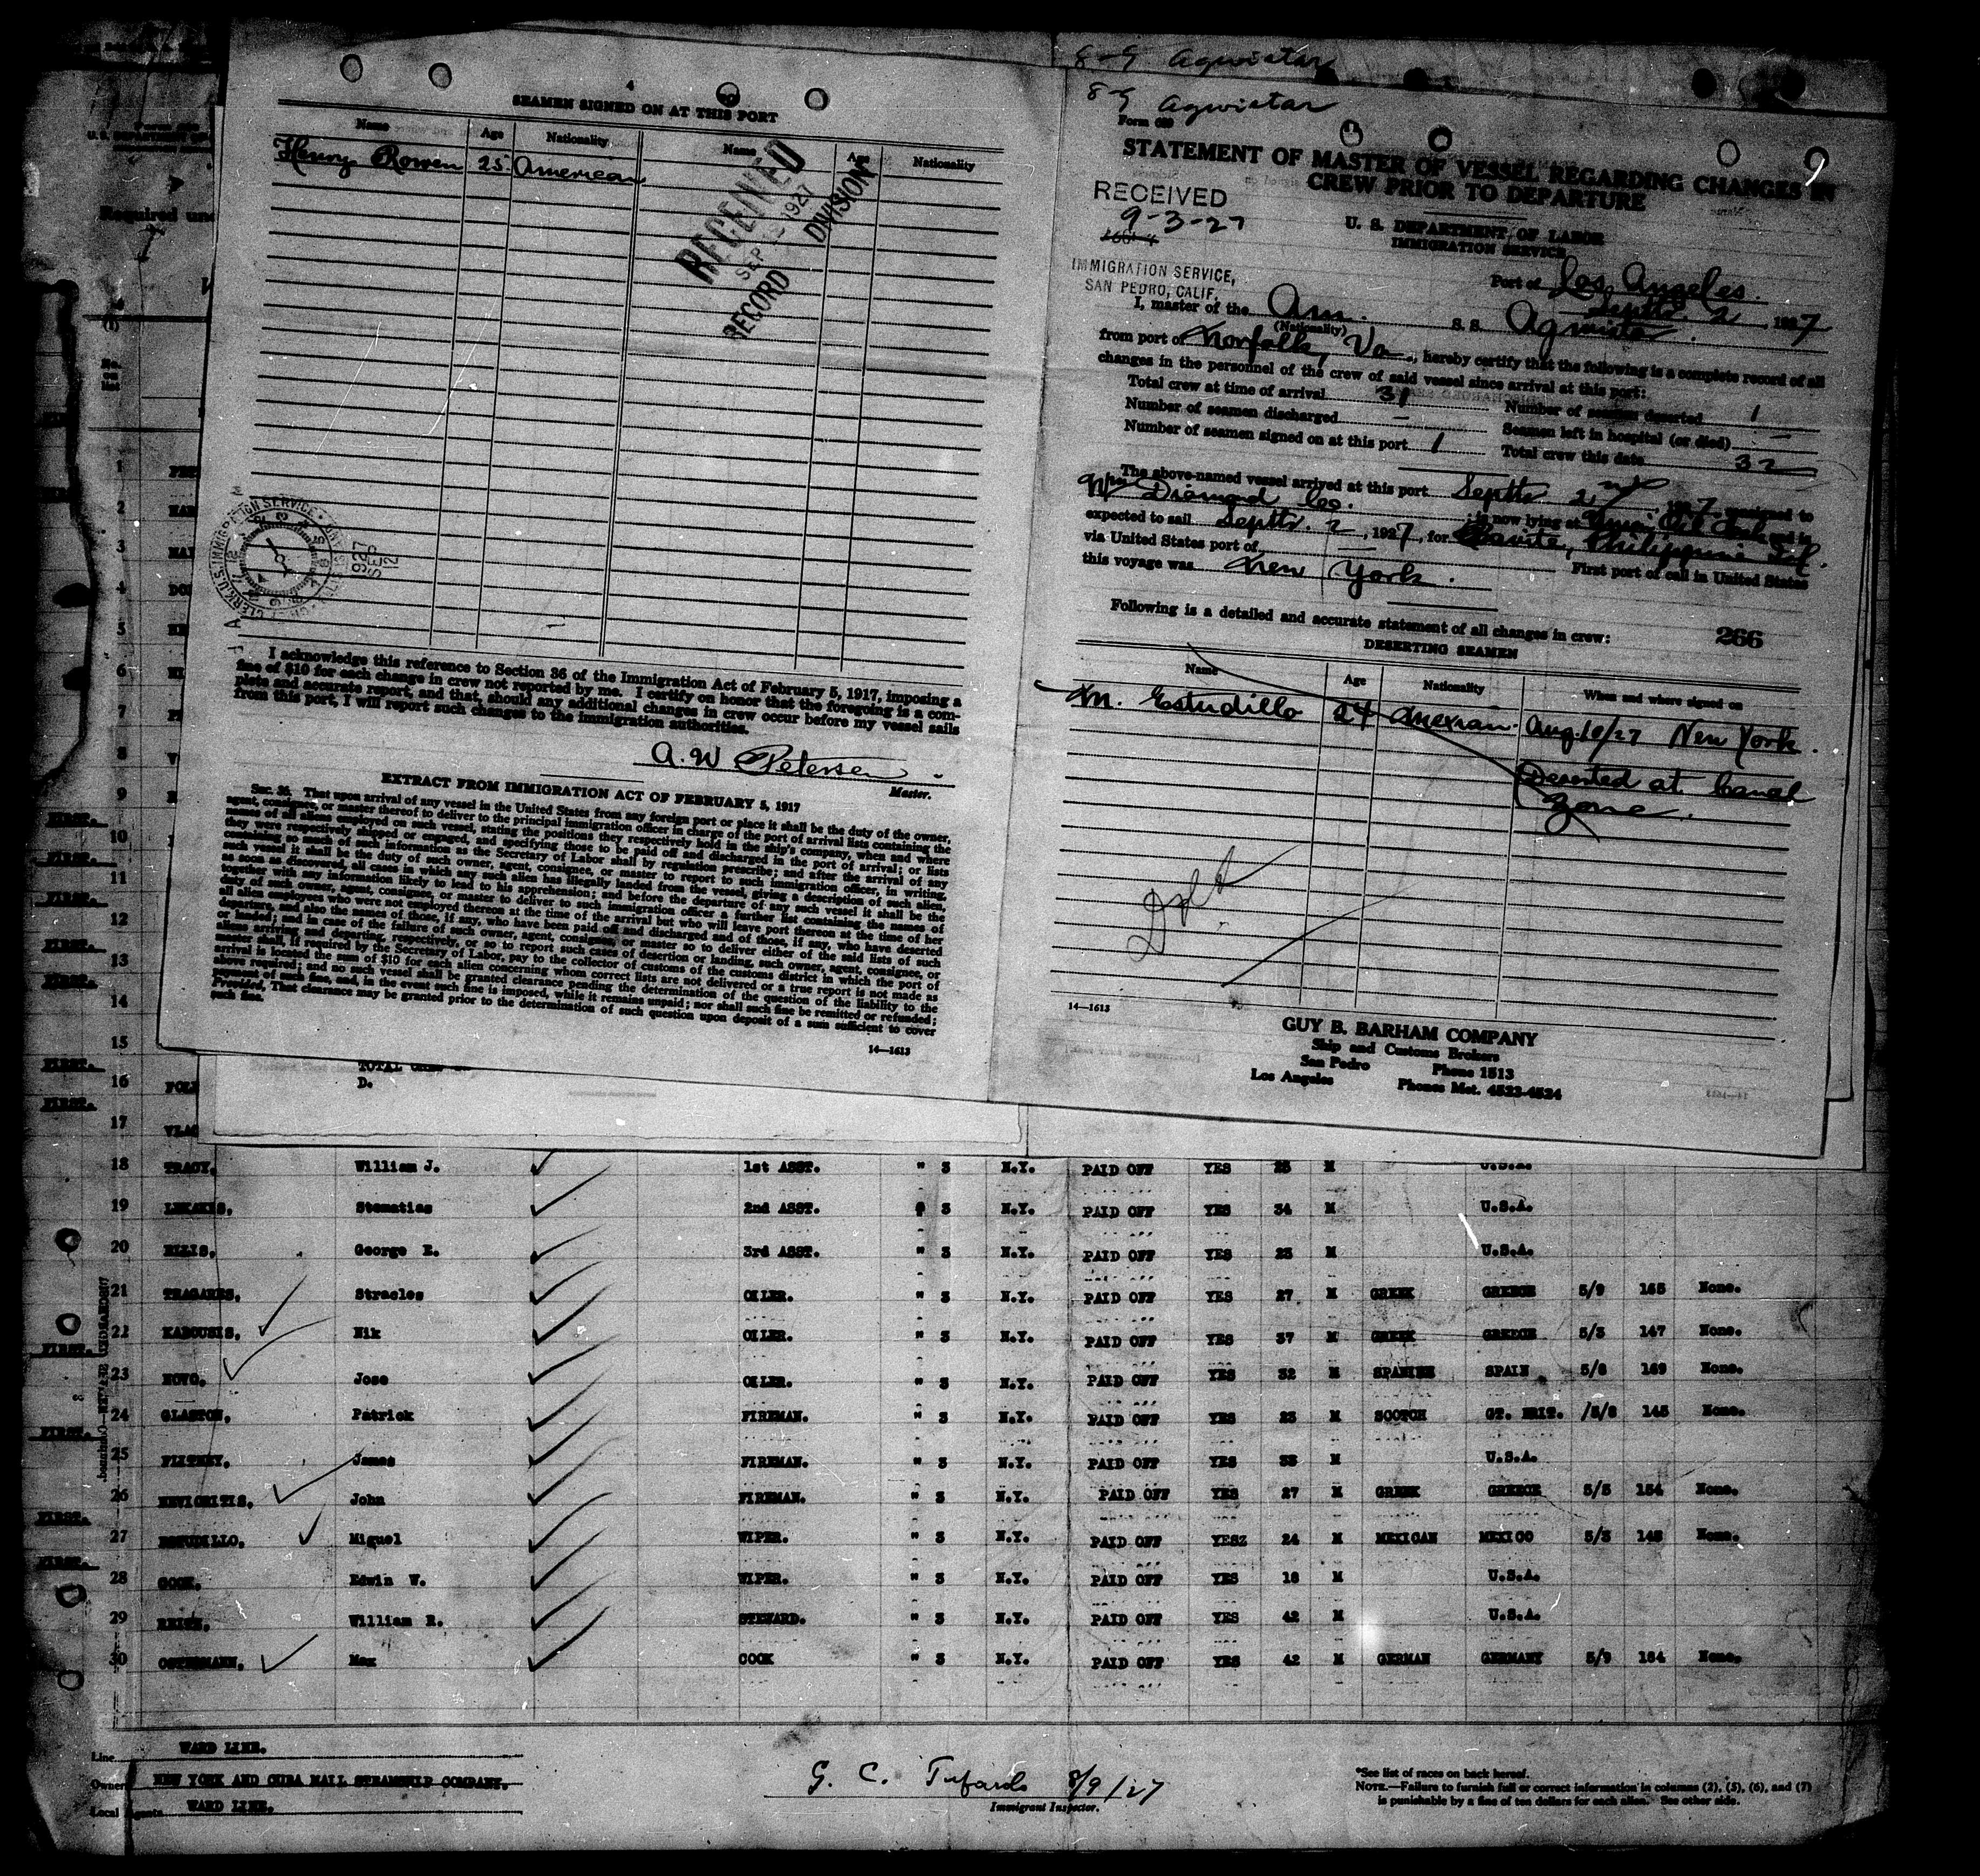 4
SEAMEN SIGNED ON AT THIS PORT
Name Age Nationality Name Age Nationality
Henry Rowen 25 American
RECEIVED
SEP 12 1927
RECORD DIVISION
I acknowledge this reference to Section 36 of the Immigration Act of February 5, 1917, imposing a
fine of $10 for each change in crew not reported by me. I certify on honor that the foregoing is a com-
plete and accurate report, and that, should any additional changes in crew occur before my vessel sails
from this port, I will report such changes to the immigration authorities.
A. W Petersen
Master.
EXTRACT FROM IMMIGRATION ACT OF FEBRUARY 5, 1917
Sec. 36. That upon arrival of any vessel in the United States from any foreign port or place it shall be the duty of the owner,
agent, consignee, or master thereof to deliver to the principal immigration officer in charge of the port of arrival lists containing the
names of all aliens employed on such vessel, stating the positions they respectively hold in the ship's company, when and where
they were respectively shipped or engaged, and specifying those to be paid off and discharged in the port of arrival; or lists
containing so much of such information as the Secretary of Labor shall by regulation prescribe; and after the arrival of any
such vessel it shall be the duty of such owner, agent, consignee, or master to report to such immigration officer, in writing,
as soon as discovered, all cases in which any such alien has illegally landed from the vessel, giving a description of such alien,
together with any information likely to lead to his apprehension; and before the departure of any such vessel it shall be the
duty of such owner, agent, consignee, or master to deliver to such immigration officer a further list containing the names of
all alien employees who were not employed thereon at the time of the arrival but who will leave port thereon at the time of her
departure, and also the names of those, if any, who have been paid off and discharged and of those, if any, who have deserted
or landed; and in case of the failure of such owner, agent, consignee, or master so to deliver either of the said lists of such
aliens arriving and departing, respectively, or so to report such cases of desertion or landing, such owner, agent, consignee, or
master shall, if required by the Secretary of Labor, pay to the collector of customs of the customs district in which the port of
arrival is located the sum of $10 for each alien concerning whom correct lists are not delivered or a true report is not made as
above required; and no such vessel shall be granted clearance pending the determination of the question of the liability to the
payment of such fine, and, in the event such fine is imposed, while it remains unpaid; nor shall such fine be remitted or refunded;
Provided, That clearance may be granted prior to the determination of such question upon deposit of a sum sufficient to cover
such fine.
14—1613
8-9 Agwistar
8-9 Agwistar
STATEMENT OF MASTER OF VESSEL REGARDING CHANGES IN
CREW PRIOR TO DEPARTURE
RECEIVED
9-3-27
IMMIGRATION SERVICE,
SAN PEDRO, CALIF.
U. S. DEPARTMENT OF LABOR
IMMIGRATION SERVICE
Port of Los Angeles.
Septbr 2, 1927
I, master of the Am. S. S. Agwistar
(Nationality)
from port of Norfolk, Va, hereby certify that the following is a complete record of all
changes in the personnel of the crew of said vessel since arrival at this port:
Total crew at time of arrival 31 Number of seamen deserted 1
Number of seamen discharged - Seamen left in hospital (or died) -
Number of seamen signed on at this port 1 Total crew this date 32
The above-named vessel arrived at this port Septbr 2nd, 1927, consigned to
Diamond Co. is now lying at and is
expected to sail Septbr. 2, 1927, for Cavite, Philippine Isl.
via United States port of First port of call in United States
this voyage was New York.
Following is a detailed and accurate statement of all changes in crew: 266
DESERTING SEAMEN
Name Age Nationality When and where signed on
M. Estudillo 24 Mexican Aug. 10/27 New York.
Deserted at Canal
Zone.
14—1613
GUY B. BARHAM COMPANY
Ship and Customs Brokers
San Pedro Phone 1513
Los Angeles Phones Met. 4523-4524
D.
18 TRACY, William J. 1st ASST. " 3 N.Y. PAID OFF YES 25 M U.S.A.
19 LEKAKIS, Stematias 2nd ASST. 3 N.Y. PAID OFF YES 34 M U.S.A.
20 ELLIS, George E. 3rd ASST. " 3 N.Y. PAID OFF YES 23 M U.S.A.
21 TRAGARES, Stracles OILER. " 3 N.Y. PAID OFF YES 27 M GREEK GREECE 5/9 165 None.
22 KABOUSIS, Nik OILER. " 3 N.Y. PAID OFF YES 37 M GREEK GREECE 5/3 147 None.
23 NOVO, Jose OILER. " 3 N.Y. PAID OFF YES 32 M SPANISH SPAIN 5/8 169 None.
24 GLASTON, Patrick FIREMAN. " 3 N.Y. PAID OFF YES 23 M SCOTCH GT. BRIT. /5/8 145 None.
25 James FIREMAN. " 3 N.Y. PAID OFF YES 33 M U.S.A.
26 John FIREMAN. " 3 N.Y. PAID OFF YES 27 M GREEK GREECE 5/5 154 None.
27 ESTUDILLO, Miguel WIPER. " 3 N.Y. PAID OFF YESZ 24 M MEXICAN MEXICO 5/3 148 None.
28 COOK, Edwin W. WIPER. " 3 N.Y. PAID OFF YES 18 M U.S.A.
29 William R. STEWARD. " 3 N.Y. PAID OFF YES 42 M U.S.A.
30 OSTERMANN, Max COOK " 3 N.Y. PAID OFF YES 42 M GERMAN GERMANY 5/9 164 None.
Line WARD LINE.
Owners NEW YORK AND CUBA MAIL STEAMSHIP COMPANY.
Local Agents WARD LINE.
G. C. Tufards 8/9/27
Immigrant Inspector.
*See list of races on back hereof.
NOTE.—Failure to furnish full or correct information in columns (2), (5), (6), and (7)
is punishable by a fine of ten dollars for each alien. See other side.